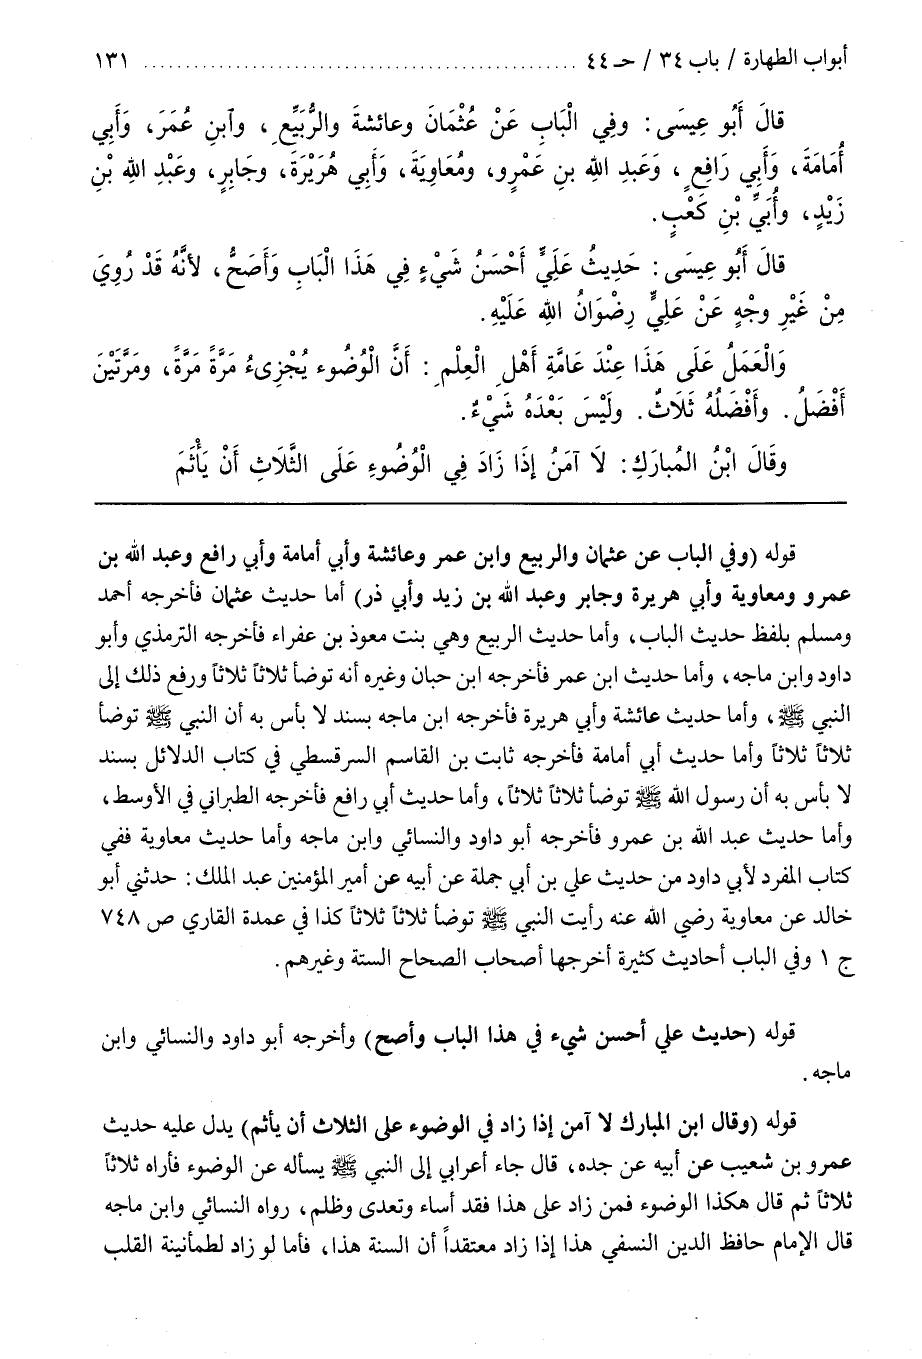 أبواب الطهارة / باب ٣٤ / حـ ٤٤ ................................................ ١٣١
قالَ أَبُو عِيسَى: وفِي الْبَابِ عَنْ عُثْمَانَ وعائشةَ والرُّبَيِّعِ، وآبنِ عُمَرَ، وَأَبِي
أُمَامَةَ، وَأَبِي رَافِعٍ، وَعَبدِ اللهِ بنِ عَمْرٍو، ومُعَاوِيَةَ، وَأَبِي هُرَيْرَةَ، وجَابِرٍ، وعَبْدِ اللهِ بْنِ
زَيْدٍ، وأُبَيِّ بْنِ كَعْبٍ.
قالَ أَبُو عِيسَى: حَدِيثُ عَلِيٍّ أَحْسَنُ شَيْءٍ فِي هَذَا الْبَابِ وَأَصَحُّ، لأنَّهُ قَدْ رُوِيَ
مِنْ غَيْرِ وجْهٍ عَنْ عَلِيٍّ رِضْوَانُ اللهِ عَلَيْهِ.
وَالْعَمَلُ عَلَى هَذَا عِنْدَ عَامَّةِ أَهْلِ الْعِلْمِ: أَنَّ الْوُضُوء يُجْزِىءُ مَرَّةً مَرَّةً، ومَرَّتَيْنِ
أَفْضَلُ. وأَفْضَلُهُ ثَلَاثٌ. ولَيْسَ بَعْدَهُ شَيْءٌ.
وقَالَ ابْنُ المُبارَكِ: لَا آمَنُ إذَا زَادَ فِي الْوُضُوءِ عَلَى الثَّلَاثِ أَنْ يَأْثَمَ
قوله (وفي الباب عن عثمان والربيع وابن عمر وعائشة وأبي أمامة وأبي رافع وعبد الله بن
عمرو ومعاوية وأبي هريرة وجابر وعبد الله بن زيد وأبي ذر) أما حديث عثمان فأخرجه أحمد
ومسلم بلفظ حديث الباب، وأما حديث الربيع وهي بنت معوذ بن عفراء فأخرجه الترمذي وأبو
داود وابن ماجه، وأما حديث ابن عمر فأخرجه ابن حبان وغيره أنه توضأ ثلاثاً ثلاثاً ورفع ذلك إلى
النبي ﷺ، وأما حديث عائشة وأبي هريرة فأخرجه ابن ماجه بسند لا بأس به أن النبي ﷺ توضأ
ثلاثاً ثلاثاً وأما حديث أبي أمامة فأخرجه ثابت بن القاسم السرقسطي في كتاب الدلائل بسند
لا بأس به أن رسول الله ﷺ توضأ ثلاثاً ثلاثاً، وأما حديث أبي رافع فأخرجه الطبراني في الأوسط،
وأما حديث عبد الله بن عمرو فأخرجه أبو داود والنسائي وابن ماجه وأما حديث معاوية ففي
كتاب المفرد لأبي داود من حديث علي بن أبي جملة عن أبيه عن أمير المؤمنين عبد الملك: حدثني أبو
خالد عن معاوية رضي الله عنه رأيت النبي ﷺ توضأ ثلاثاً ثلاثاً كذا في عمدة القاري ص ٧٤٨
ج ١ وفي الباب أحاديث كثيرة أخرجها أصحاب الصحاح الستة وغيرهم.
قوله (حديث علي أحسن شيء في هذا الباب وأصح) وأخرجه أبو داود والنسائي وابن
ماجه.
قوله (وقال ابن المبارك لا آمن إذا زاد في الوضوء على الثلاث أن يأثم) يدل عليه حديث
عمرو بن شعيب عن أبيه عن جده، قال جاء أعرابي إلى النبي ﷺ يسأله عن الوضوء فأراه ثلاثاً
ثلاثاً ثم قال هكذا الوضوء فمن زاد على هذا فقد أساء وتعدى وظلم، رواه النسائي وابن ماجه
قال الإمام حافظ الدين النسفي هذا إذا زاد معتقداً أن السنة هذا، فأما لو زاد لطمأنينة القلب